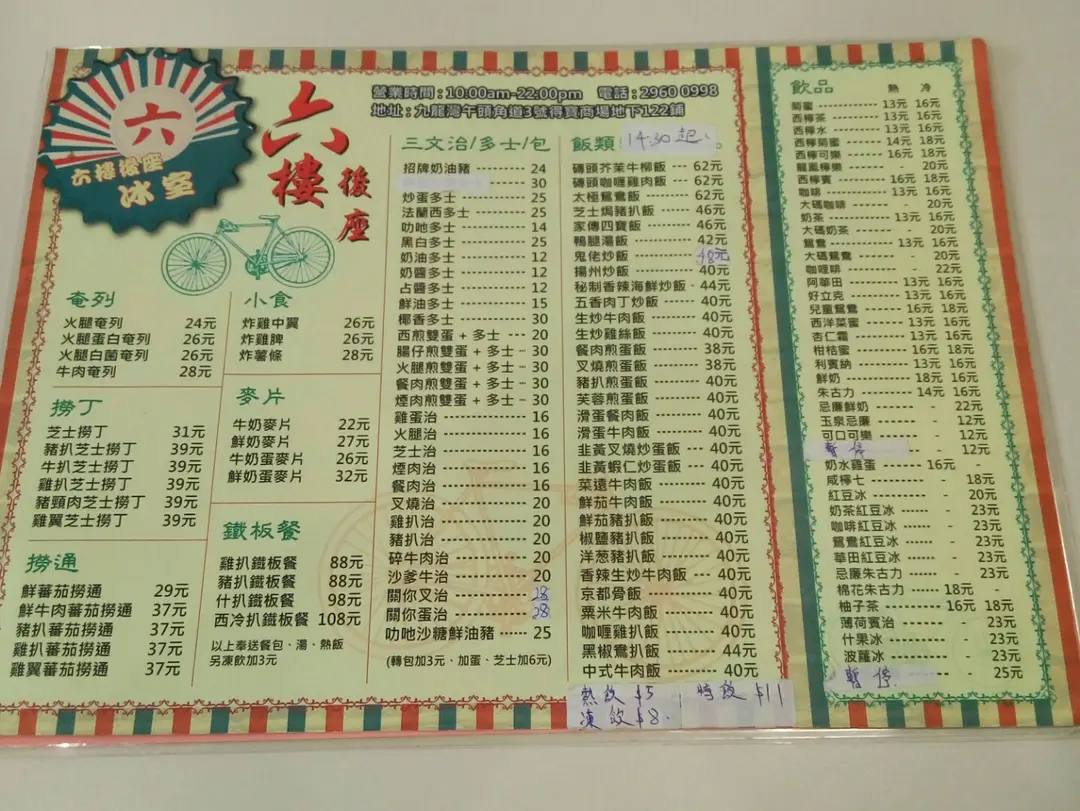 六
六樓後座
冰室
六樓後座
營業時間：10:00am-22:00pm 電話：2960 0998
地址：九龍灣牛頭角道3號得寶商場地下122鋪
奄列
火腿奄列 24元
火腿蛋白奄列 26元
火腿白菌奄列 26元
牛肉奄列 28元
撈丁
芝士撈丁 31元
豬扒芝士撈丁 39元
牛扒芝士撈丁 39元
雞扒芝士撈丁 39元
豬頸肉芝士撈丁 39元
雞翼芝士撈丁 39元
撈通
鮮蕃茄撈通 29元
鮮牛肉蕃茄撈通 37元
豬扒蕃茄撈通 37元
雞扒蕃茄撈通 37元
雞翼蕃茄撈通 37元
小食
炸雞中翼 26元
炸雞脾 26元
炸薯條 28元
麥片
牛奶麥片 22元
鮮奶麥片 27元
牛奶蛋麥片 26元
鮮奶蛋麥片 32元
鐵板餐
雞扒鐵板餐 88元
豬扒鐵板餐 88元
什扒鐵板餐 98元
西冷扒鐵板餐 108元
以上奉送餐包、湯、熱飯
另凍飲加3元
三文治/多士/包
招牌奶油豬 24
30
炒蛋多士 25
法蘭西多士 25
叻吔多士 14
黑白多士 25
奶油多士 12
奶醬多士 12
占醬多士 12
鮮油多士 15
椰香多士 30
西煎雙蛋 + 多士 20
腸仔煎雙蛋 + 多士 30
火腿煎雙蛋 + 多士 30
餐肉煎雙蛋 + 多士 30
煙肉煎雙蛋 + 多士 30
雞蛋治 16
火腿治 16
芝士治 16
煙肉治 16
餐肉治 16
叉燒治 20
雞扒治 20
豬扒治 20
碎牛肉治 20
沙爹牛治 20
關你叉治 28
關你蛋治 28
叻吔沙糖鮮油豬 25
(轉包加3元、加蛋、芝士加6元)
飯類 14:30起
磚頭芥茉牛柳飯 62元
磚頭咖喱雞肉飯 62元
太極鴛鴦飯 62元
芝士焗豬扒飯 46元
家傳四寶飯 46元
鴨腿湯飯 42元
鬼佬炒飯 48元
揚州炒飯 40元
秘制香辣海鮮炒飯 44元
五香肉丁炒飯 40元
生炒牛肉飯 40元
生炒雞絲飯 40元
餐肉煎蛋飯 38元
叉燒煎蛋飯 38元
豬扒煎蛋飯 40元
芙蓉煎蛋飯 40元
滑蛋餐肉飯 40元
滑蛋牛肉飯 40元
韭黃叉燒炒蛋飯 40元
韭黃蝦仁炒蛋飯 40元
菜遠牛肉飯 40元
鮮茄牛肉飯 40元
鮮茄豬扒飯 40元
椒鹽豬扒飯 40元
洋葱豬扒飯 40元
香辣生炒牛肉飯 40元
京都骨飯 40元
粟米牛肉飯 40元
咖喱雞扒飯 40元
黑椒鴛扒飯 44元
中式牛肉飯 40元
熱飲 $5 特飲 $11
凍飲 $8
飲品 熱 冷
菊蜜 13元 16元
西檸茶 13元 16元
西檸水 13元 16元
西檸菊蜜 14元 18元
西檸可樂 16元 18元
龍鳳檸樂 - 20元
西檸賓 16元 18元
咖啡 13元 16元
大碼咖啡 - 20元
奶茶 13元 16元
大碼奶茶 - 20元
鴛鴦 13元 16元
大碼鴛鴦 - 20元
咖喱啡 22元
阿華田 13元 16元
好立克 13元 16元
兒童鴛鴦 16元 18元
西洋菜蜜 13元 16元
杏仁霜 13元 16元
柑桔蜜 16元 18元
利賓納 13元 16元
鮮奶 18元 16元
朱古力 14元 16元
忌廉鮮奶 - 22元
玉泉忌廉 - 12元
可口可樂 - 12元
暫停 - 12元
奶水雞蛋 16元 -
咸檸七 - 18元
紅豆冰 - 20元
奶茶紅豆冰 - 23元
咖啡紅豆冰 - 23元
鴛鴦紅豆冰 - 23元
華田紅豆冰 - 23元
忌廉朱古力 - 23元
棉花朱古力 18元 -
柚子茶 16元 18元
薄荷賓治 - 23元
什果冰 - 23元
波蘿冰 - 23元
暫停 - 25元